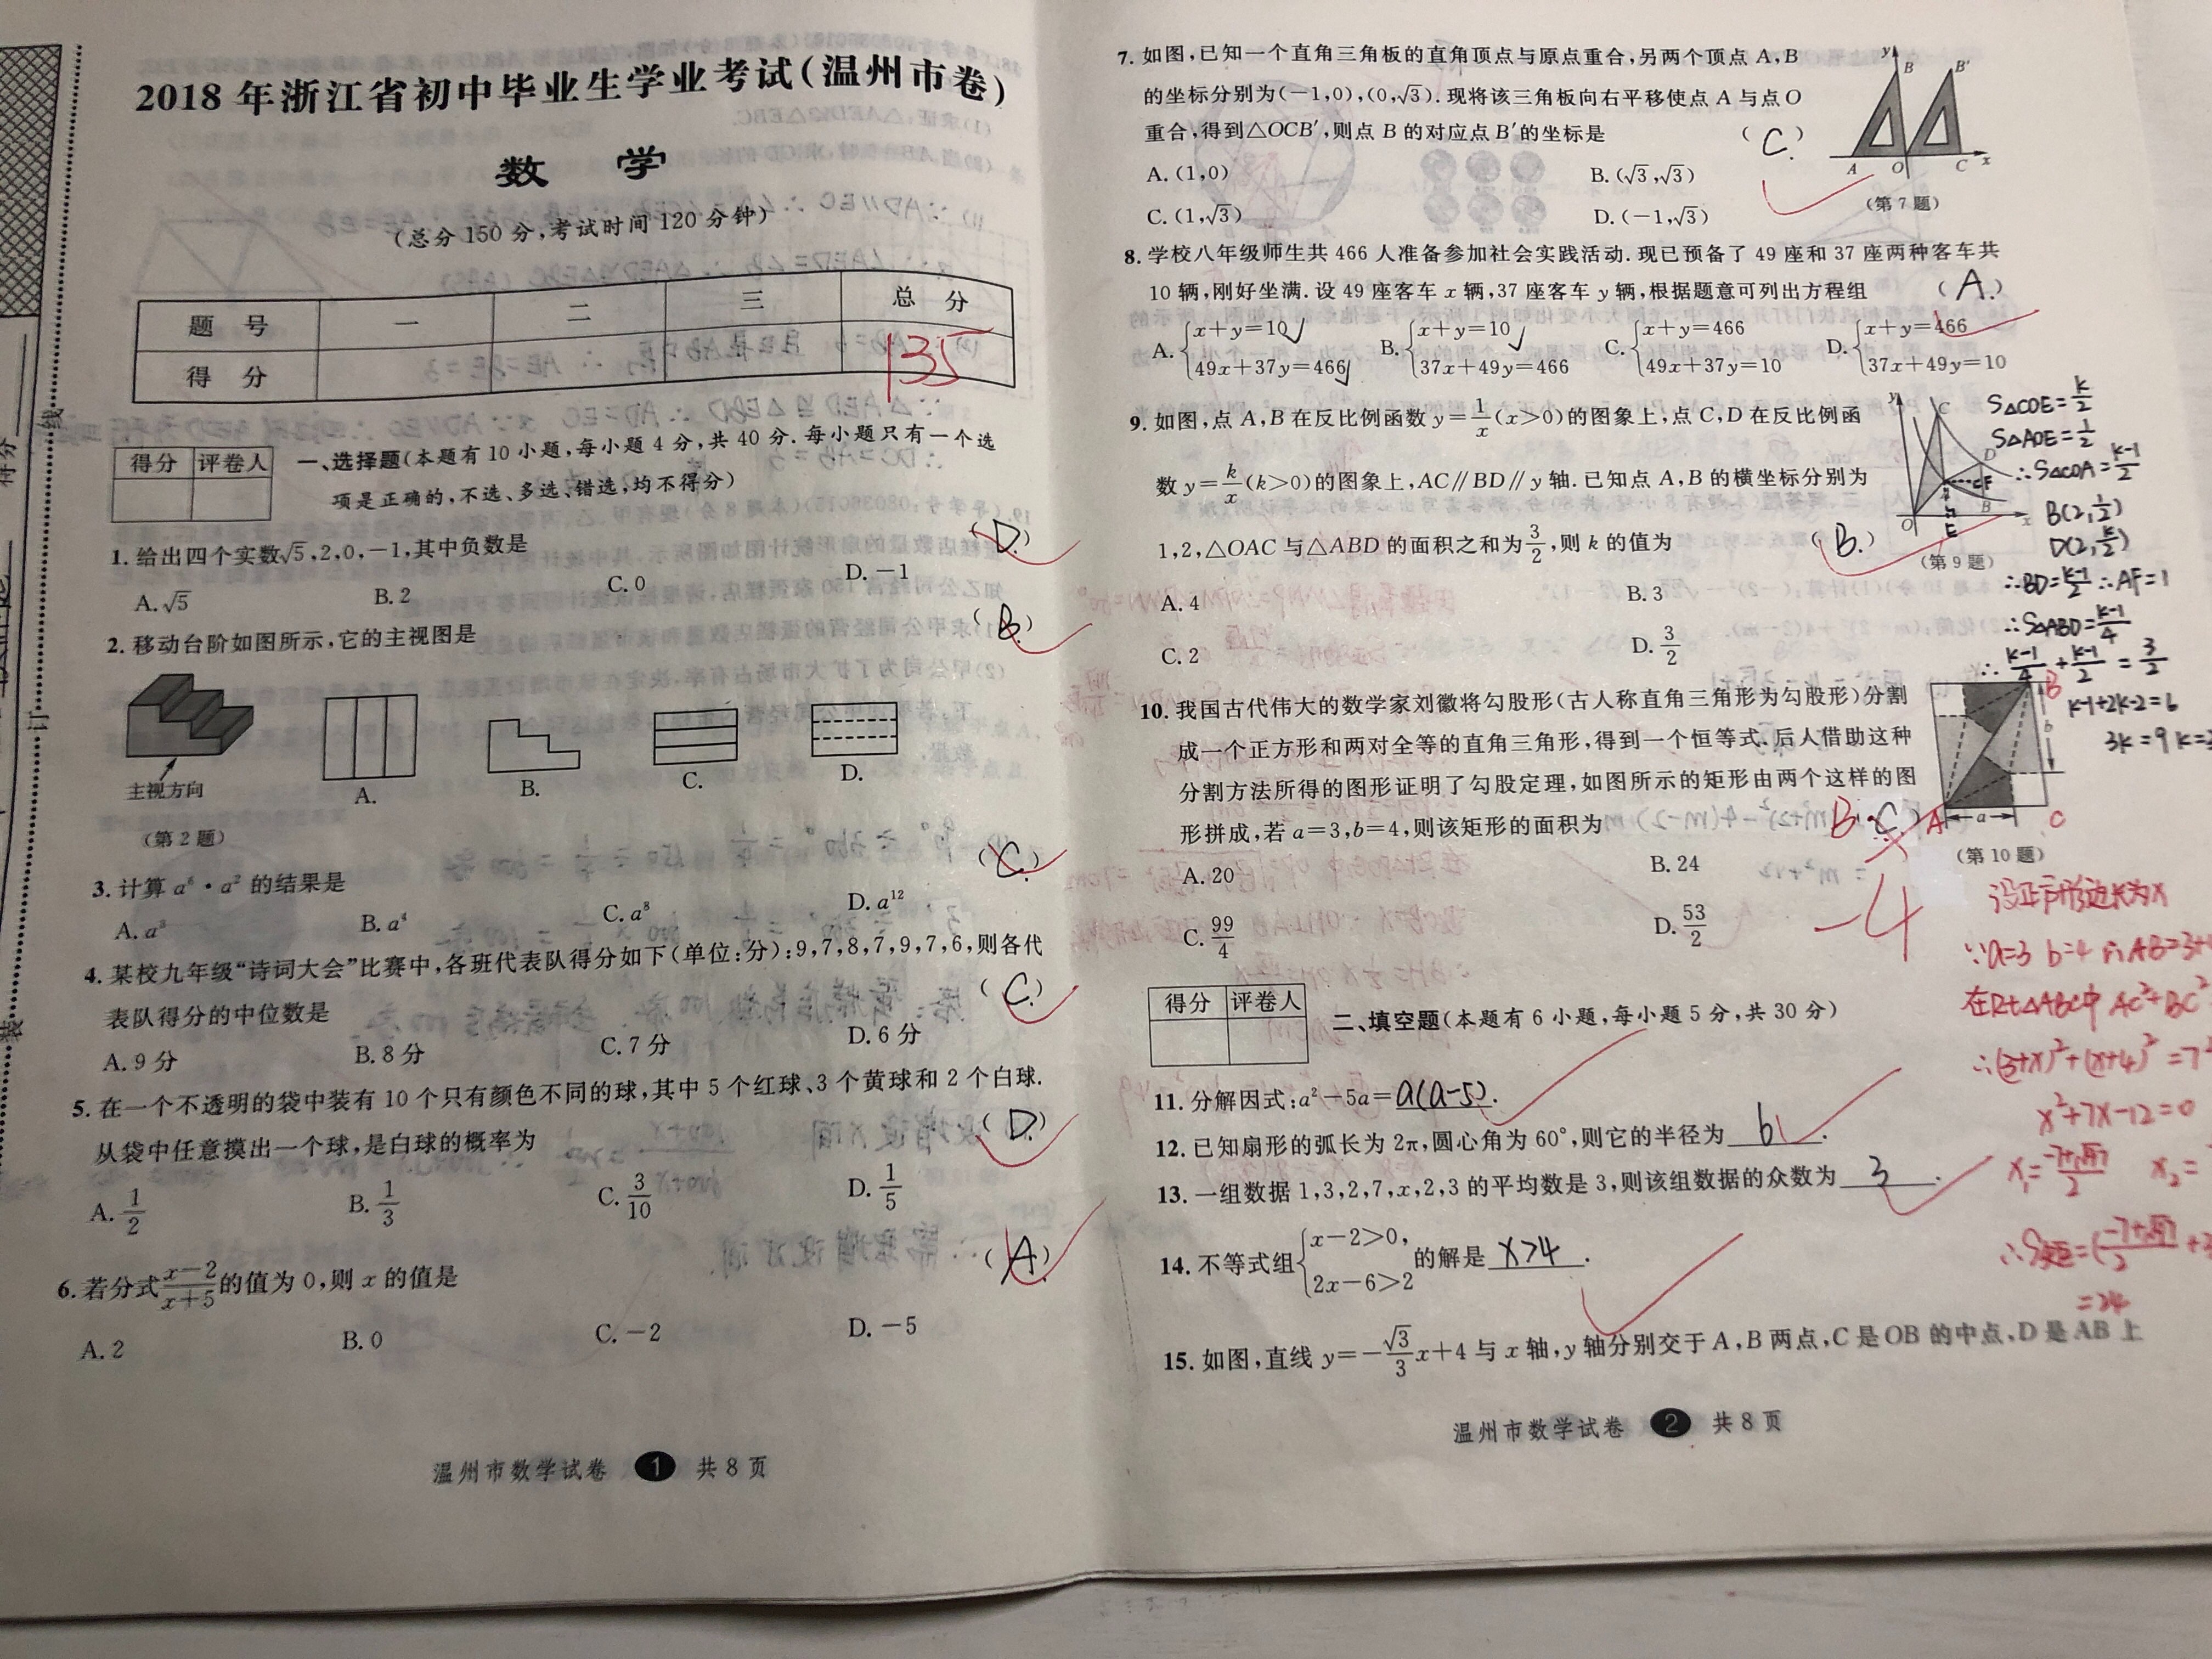 2018年浙江省初中毕业生学业考试(温州市卷)
数 学
(总分150分,考试时间120分钟)
题 号 一 二 三 总 分
得 分 135
得分 评卷人
一、选择题(本题有10小题,每小题4分,共40分.每小题只有一个选
项是正确的,不选、多选、错选,均不得分)
1. 给出四个实数√5,2,0,-1,其中负数是 (D.)
A. √5 B. 2 C. 0 D. -1
2. 移动台阶如图所示,它的主视图是 (B.)
主视方向
A. B. C. D.
(第2题)
3. 计算 a⁶·a² 的结果是 (C.)
A. a³ B. a⁴ C. a⁸ D. a¹²
4. 某校九年级“诗词大会”比赛中,各班代表队得分如下(单位:分):9,7,8,7,9,7,6,则各代
表队得分的中位数是 (C.)
A. 9分 B. 8分 C. 7分 D. 6分
5. 在一个不透明的袋中装有10个只有颜色不同的球,其中5个红球、3个黄球和2个白球.
从袋中任意摸出一个球,是白球的概率为 (D.)
A. 1/2 B. 1/3 C. 3/10 D. 1/5
6. 若分式(x-2)/(x+5)的值为0,则x的值是 (A.)
A. 2 B. 0 C. -2 D. -5
温州市数学试卷 1 共8页
7. 如图,已知一个直角三角板的直角顶点与原点重合,另两个顶点A,B
的坐标分别为(-1,0),(0,√3).现将该三角板向右平移使点A与点O
重合,得到△OCB′,则点B的对应点B′的坐标是 (C.)
A. (1,0) B. (√3,√3)
C. (1,√3) D. (-1,√3)
y B B′ A O C x
(第7题)
8. 学校八年级师生共466人准备参加社会实践活动.现已预备了49座和37座两种客车共
10辆,刚好坐满.设49座客车x辆,37座客车y辆,根据题意可列出方程组 (A.)
A. {x+y=10 B. {x+y=10 C. {x+y=466 D. {x+y=466
49x+37y=466 37x+49y=466 49x+37y=10 37x+49y=10
9. 如图,点A,B在反比例函数y=1/x(x>0)的图象上,点C,D在反比例函
数y=k/x(k>0)的图象上,AC∥BD∥y轴.已知点A,B的横坐标分别为
1,2,△OAC与△ABD的面积之和为3/2,则k的值为 (B.)
A. 4 B. 3
C. 2 D. 3/2
y C D F B O E x
(第9题)
S△COE=k/2
S△AOE=1/2
∴S△COA=(k-1)/2
B(2,1/2)
D(2,k/2)
∴BD=(k-1)/2 ∴AF=1
∴S△ABD=(k-1)/4
∴(k-1)/4+(k-1)/2=3/2
k-1+2k-2=6
3k=9 k=3
10. 我国古代伟大的数学家刘徽将勾股形(古人称直角三角形为勾股形)分割
成一个正方形和两对全等的直角三角形,得到一个恒等式.后人借助这种
分割方法所得的图形证明了勾股定理,如图所示的矩形由两个这样的图
形拼成,若a=3,b=4,则该矩形的面积为 B. (C.)
A. 20 B. 24
C. 99/4 D. 53/2
B b A a C
(第10题)
-4
设正方形边长为x
∵a=3 b=4 ∴AB=3+
在Rt△ABC中 AC²+BC²
∴(3+x)²+(x+4)²=7²
x²+7x-12=0
x₁=(-7+√97)/2 x₂=
∴S矩=((-7+√97)/2+3
=24
得分 评卷人
二、填空题(本题有6小题,每小题5分,共30分)
11. 分解因式:a²-5a=a(a-5).
12. 已知扇形的弧长为2π,圆心角为60°,则它的半径为 6 .
13. 一组数据1,3,2,7,x,2,3的平均数是3,则该组数据的众数为 3 .
14. 不等式组{x-2>0, 2x-6>2 的解是 x>4 .
15. 如图,直线y=-√3/3x+4与x轴,y轴分别交于A,B两点,C是OB的中点,D是AB上
温州市数学试卷 2 共8页